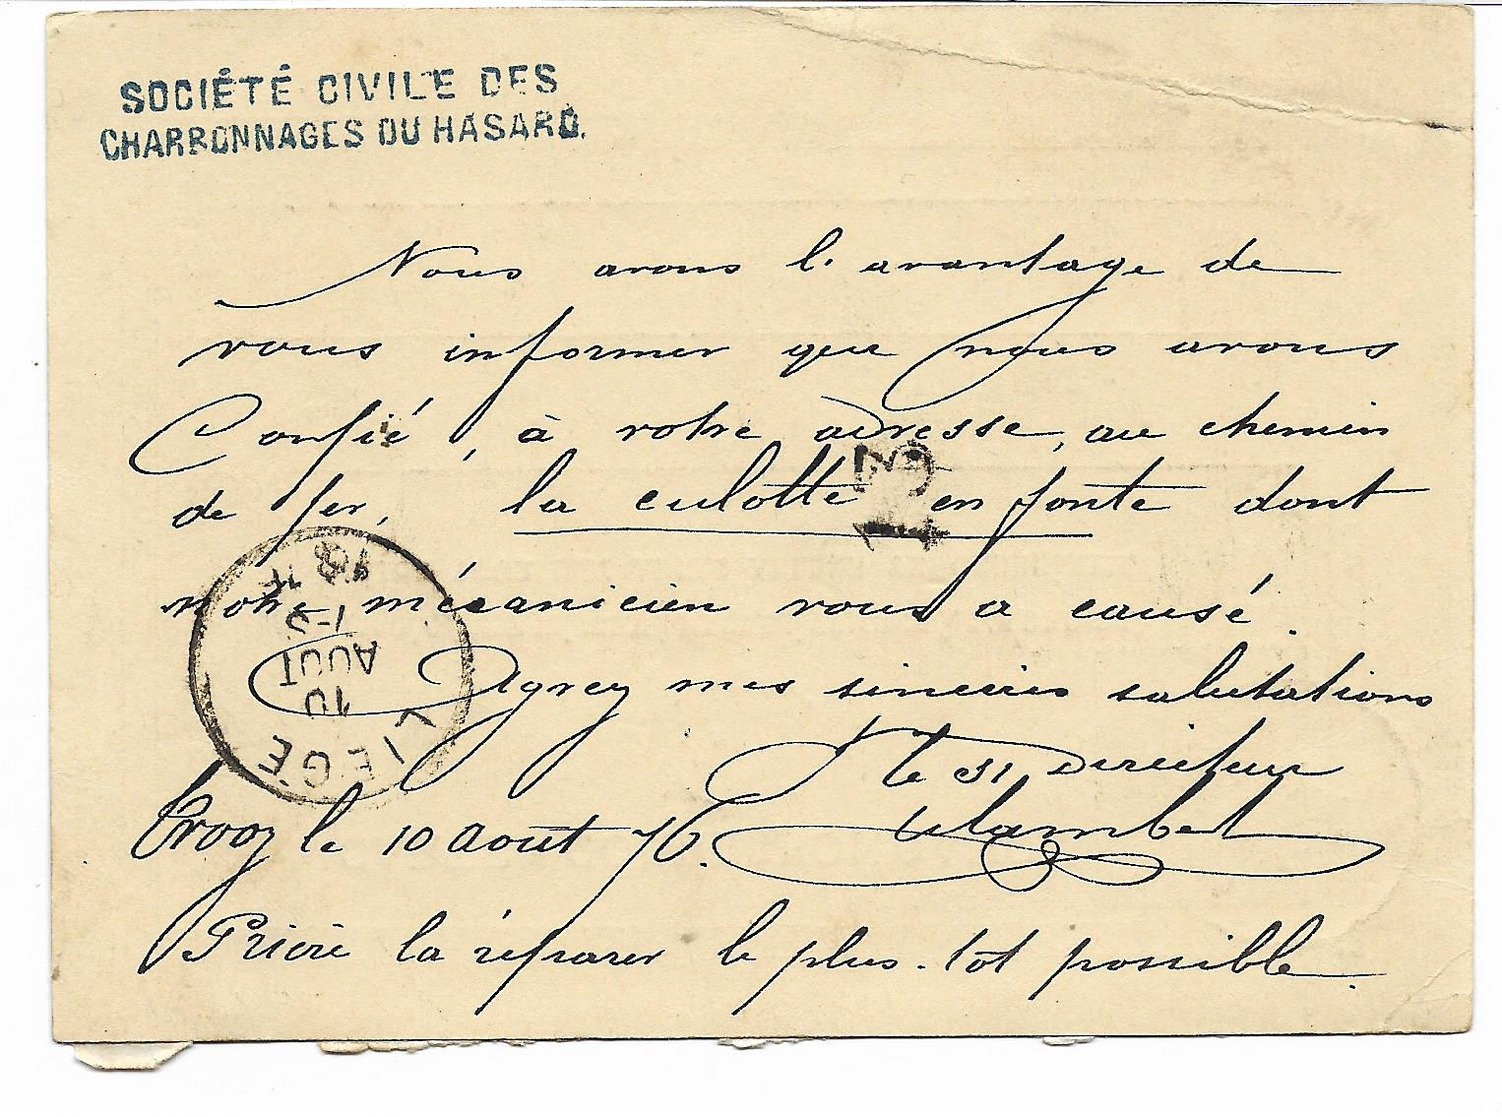 SOCIÉTÉ CIVILE DES
CHARBONNAGES DU HASARD.
Nous avons l'avantage de
vous informer que nous avons
Confié, à votre adresse, au chemin
de fer, la culotte en fonte dont
notre mécanicien vous a causé.
Agréez mes sincères salutations
le Directeur
Trooz le 10 Août 76.
Prière la réparer le plus-tôt possible.
LIEGE
10
AOUT
1-5
18